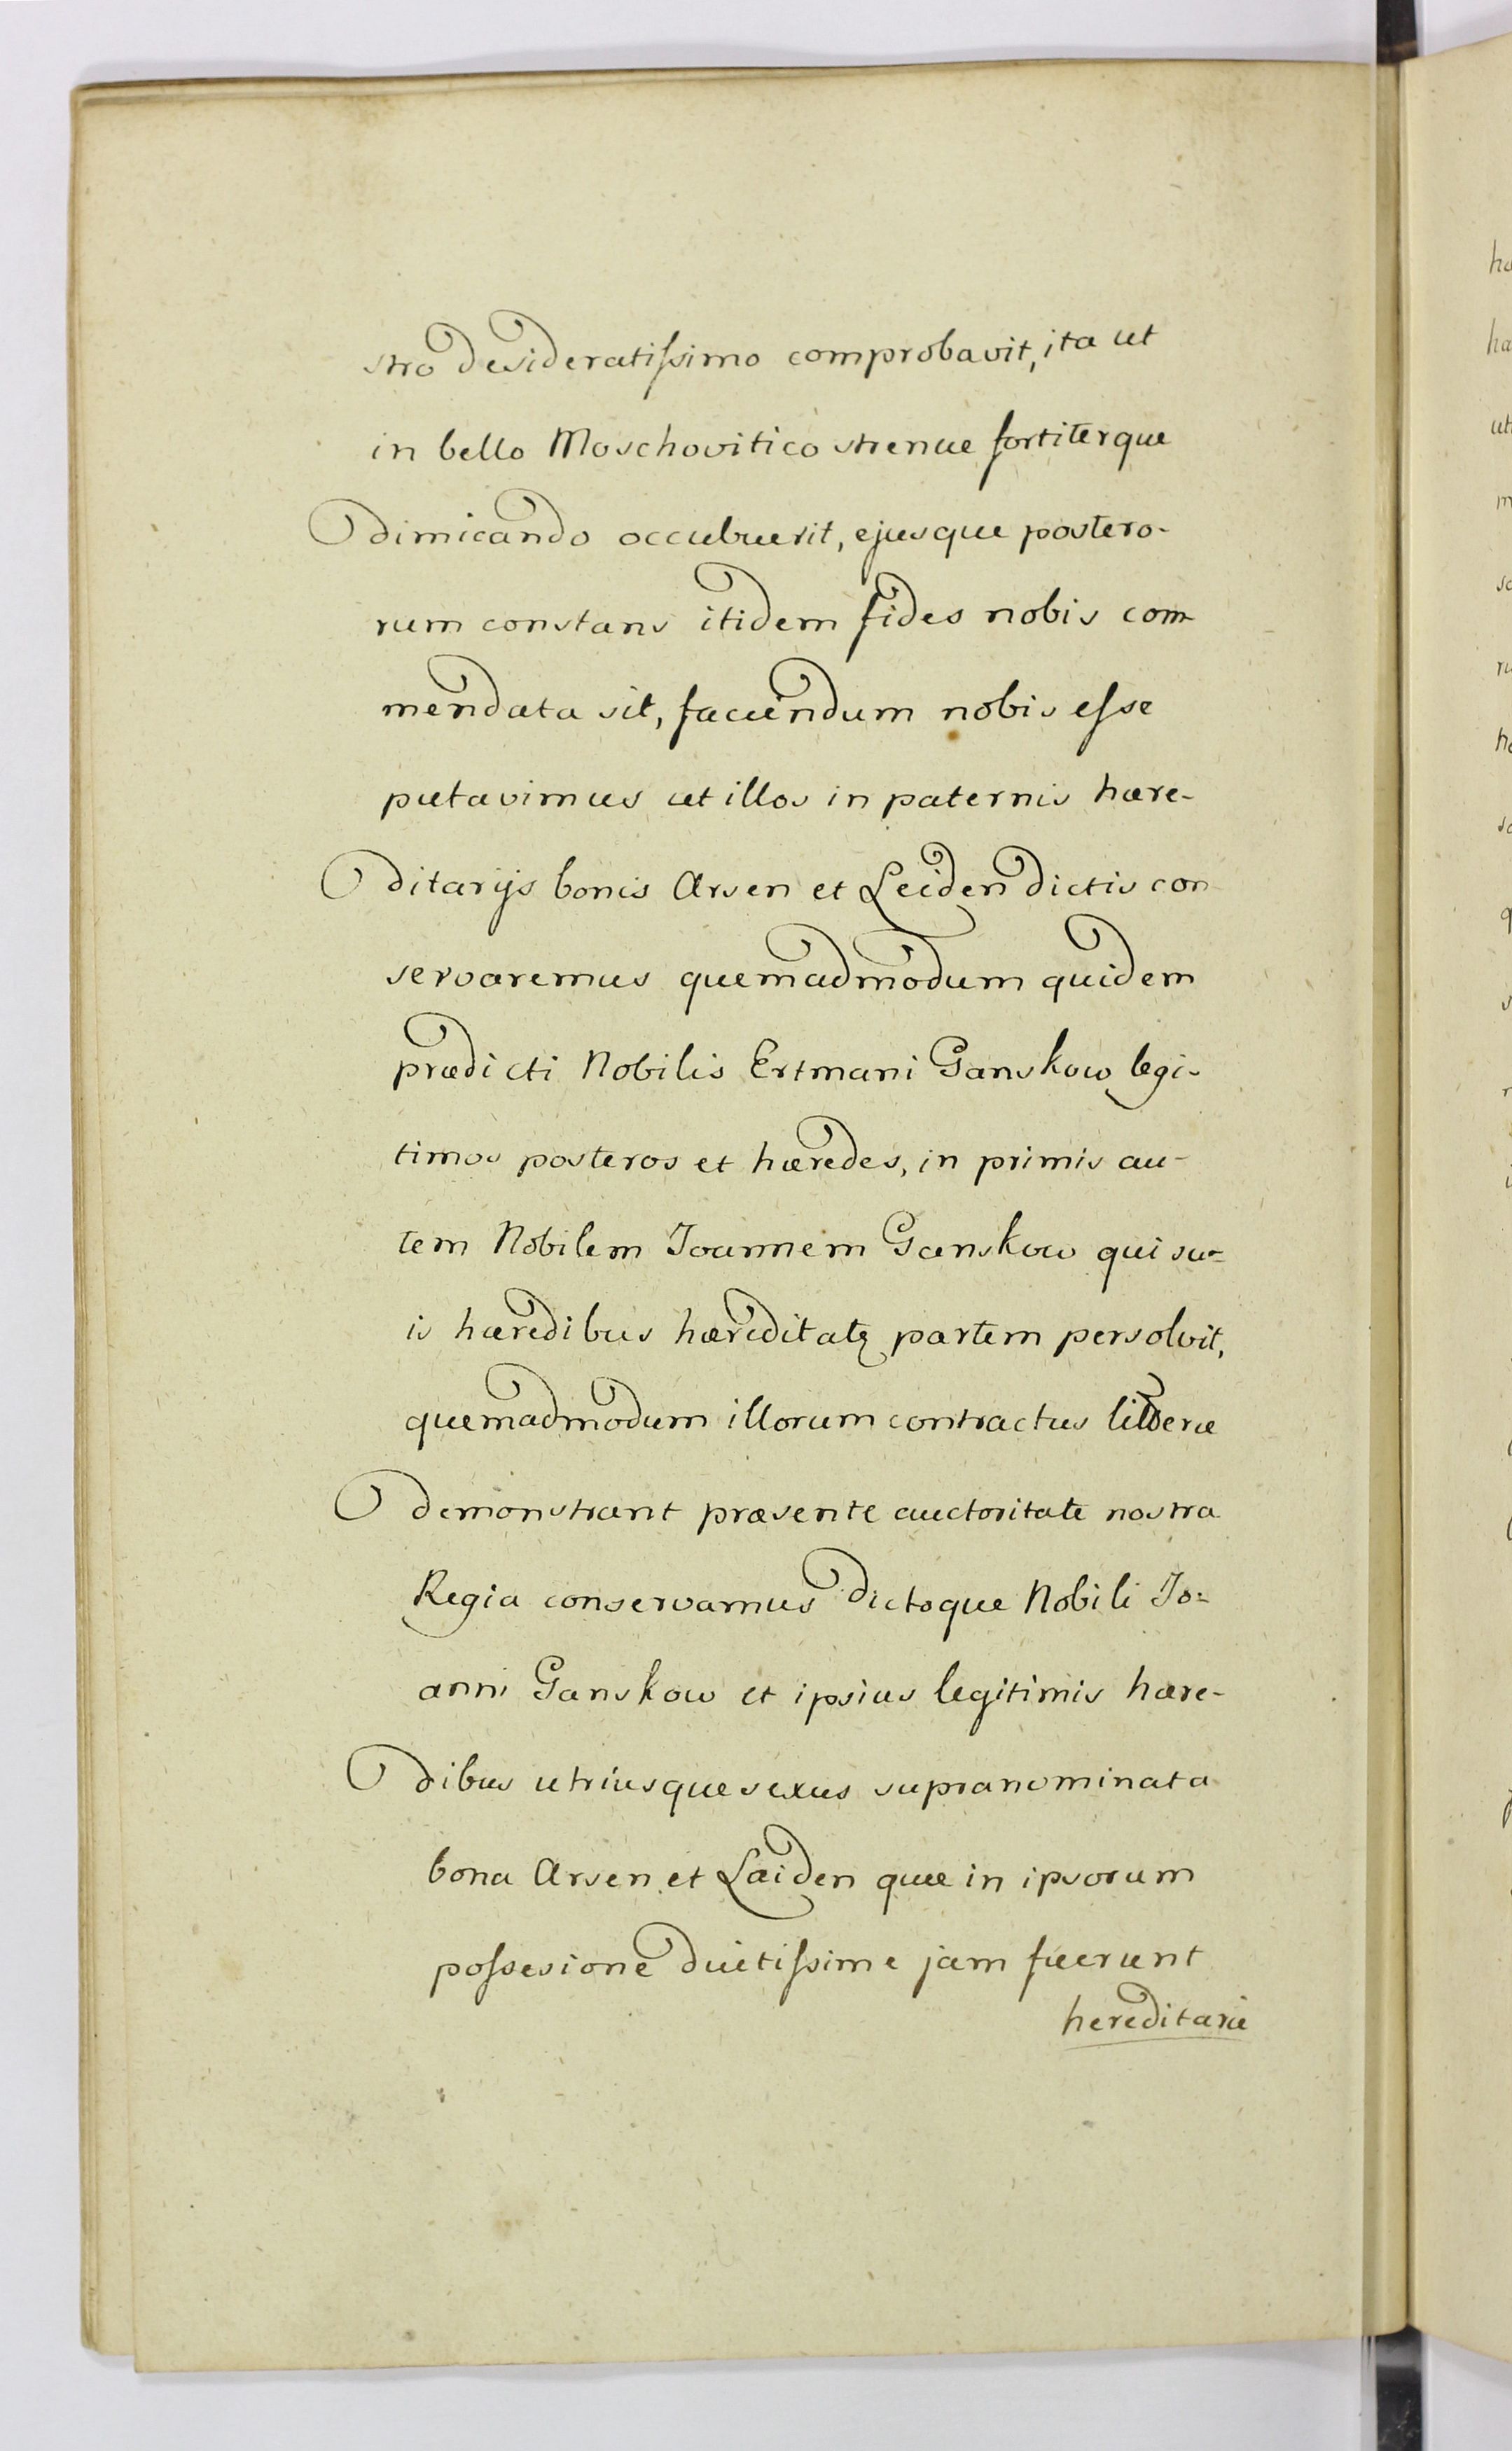 stro desideratissimo comprobavit, ita ut
in bello Moschovitico strenue fortiterque
dimicando occubuerit, ejusque postero-
rum constans itidem fides nobis com-
mendata sit, faciendum nobis esse
putavimus ut illos in paternis hære-
ditarijs bonis Arsen et Leiden dictis con-
servaremus quemadmodum quidem
prædicti Nobilis Ertmani Ganskow legi-
timos posteros et hæredes, in primis au-
tem Nobilem Joannem Ganskow qui su=
is hæredibus hæreditatę partem persolvit,
quemadmodum illorum contractus
demonstrant præsente auctoritate nostra
Regia conservamus dictoque Nobili Jo=
anni Ganskow et ipsius legitimis hære-
dibus utriusque sexus supranominata
bona Arsen et Laiden quæ in ipsorum
possesione duitissime jam fuerunt
hereditariæ
ha
ha
ut
m